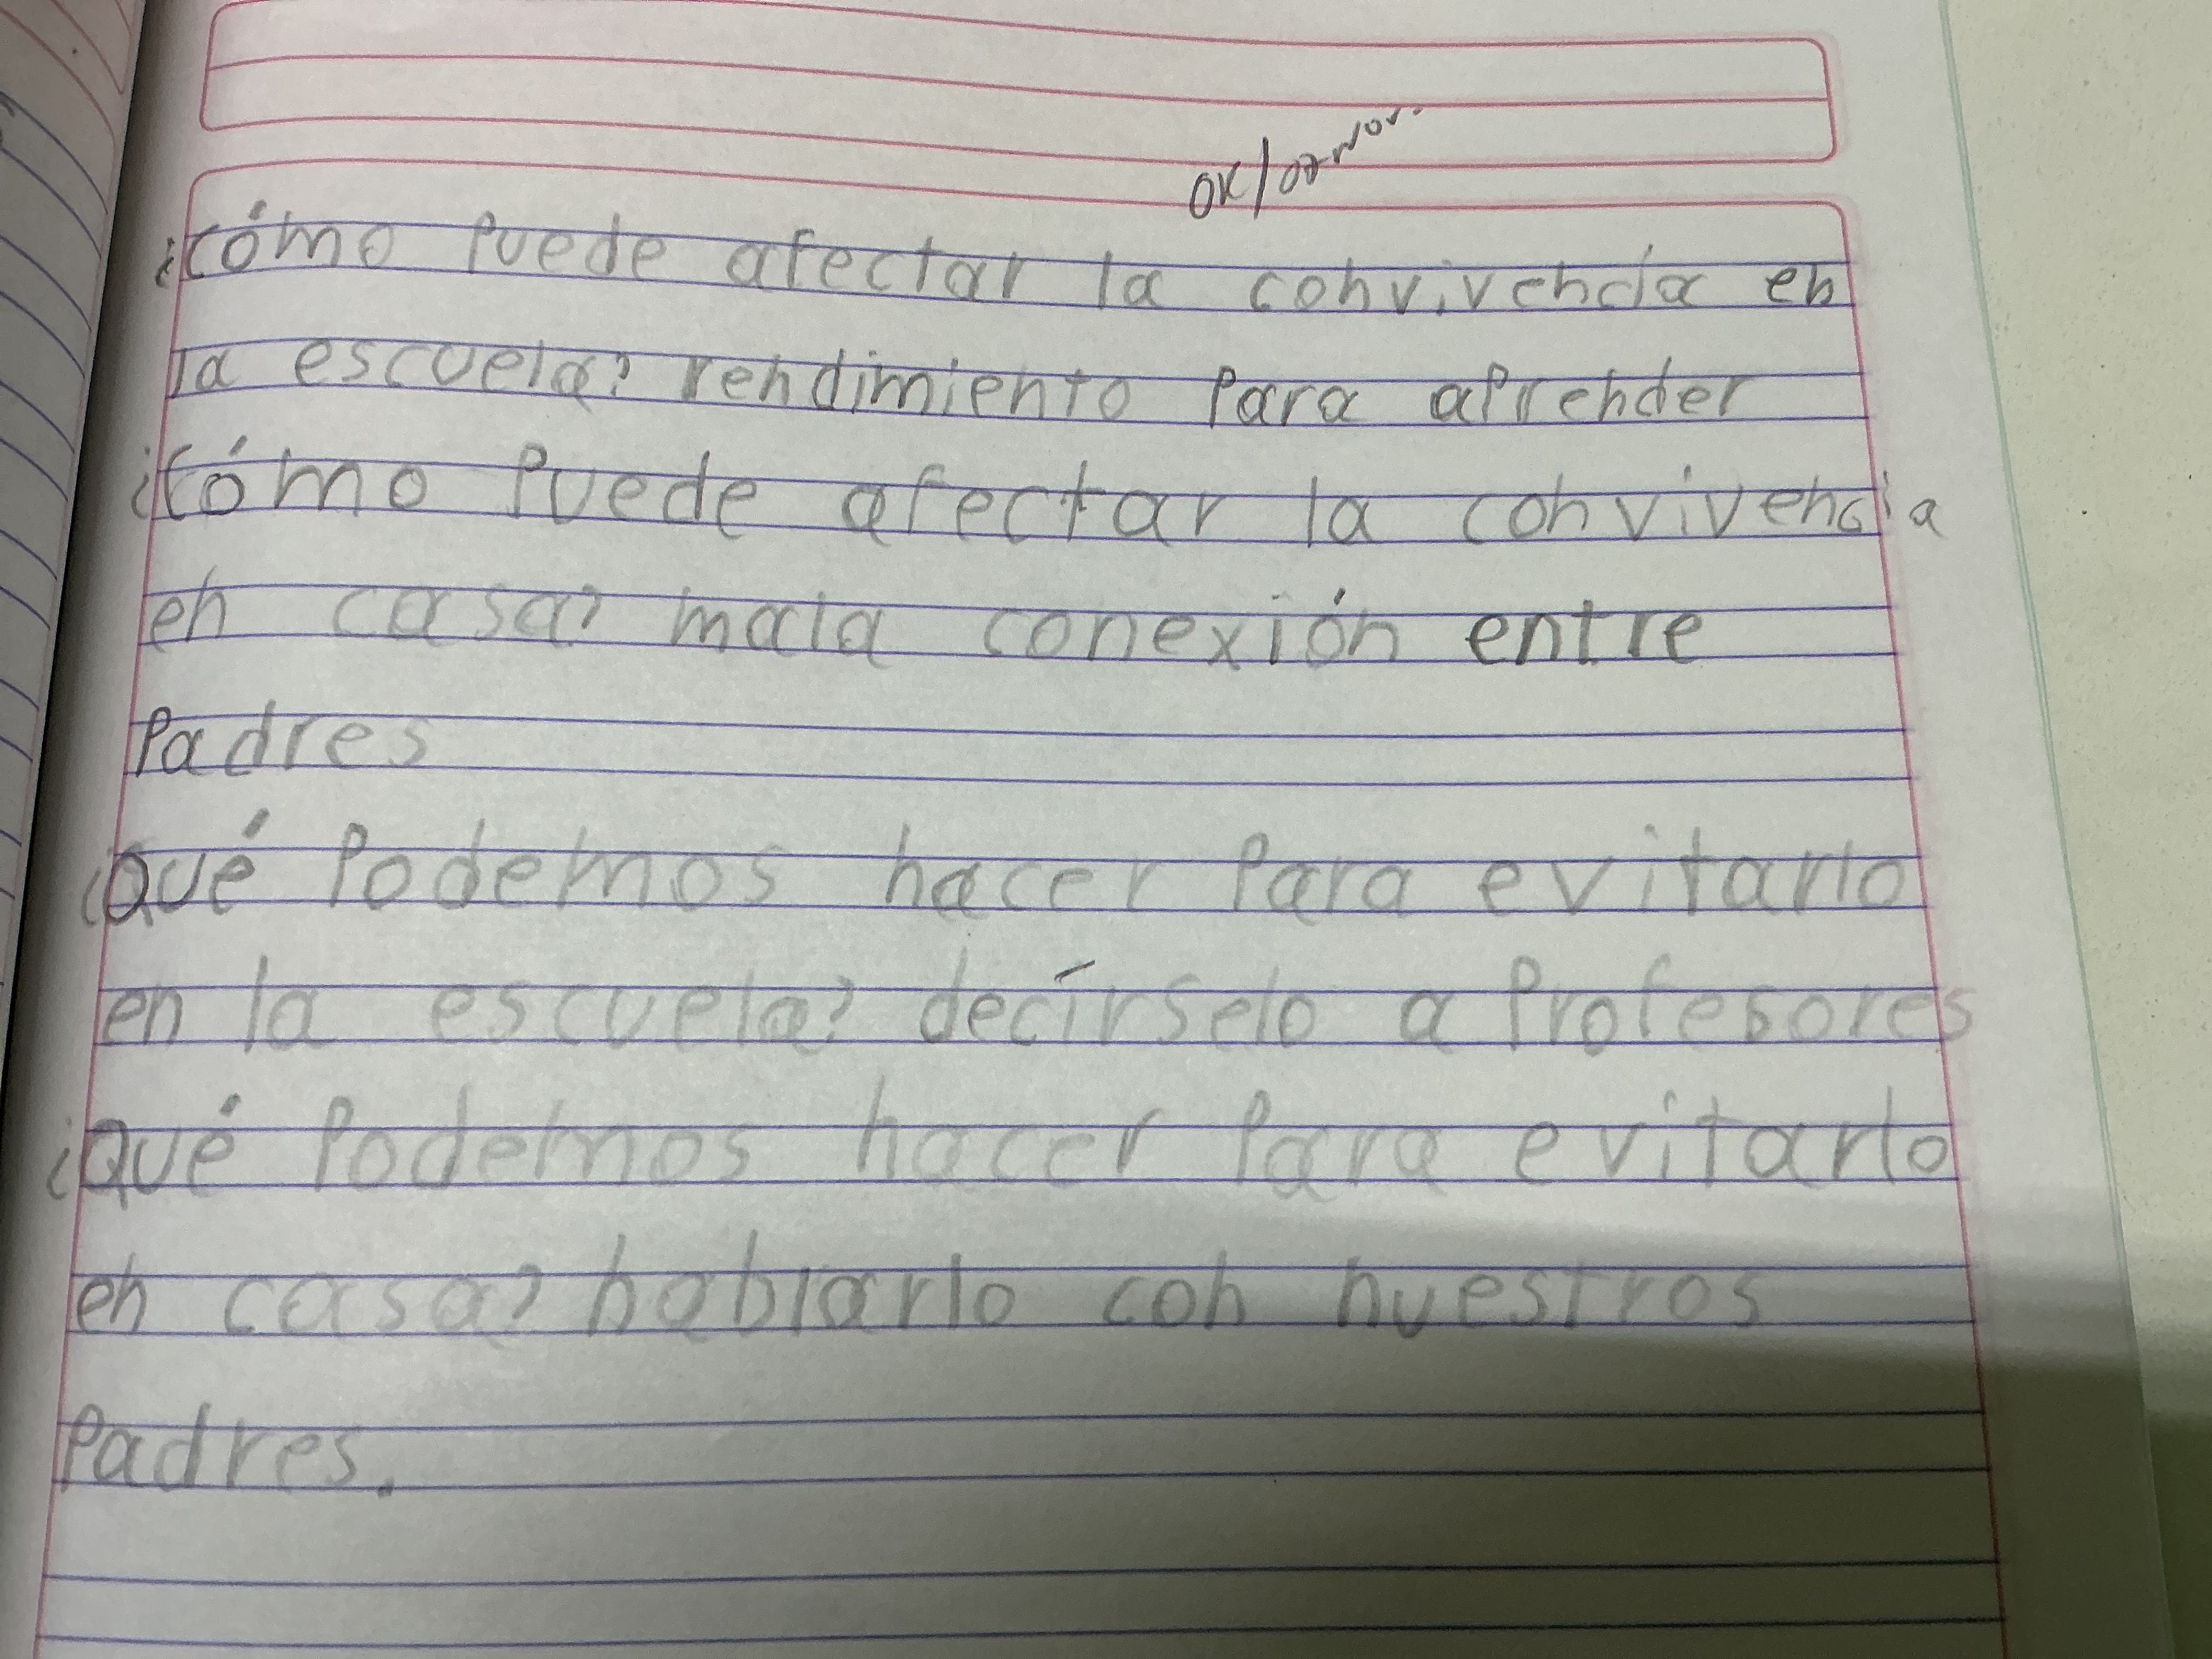 OK/
¿cómo Puede afectar la convivencia en
la escuela? rendimiento Para aPrender
¿cómo Puede afectar la convivencia
en casa? mala conexión entre
Padres
¿Qué Podemos hacer Para evitarlo
en la escuela? decírselo a Profesores
¿Qué Podemos hacer Para evitarlo
en casa? hablarlo con nuestros
Padres.